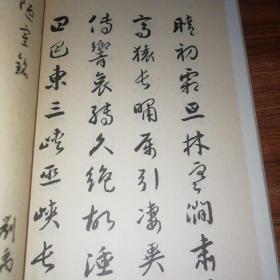 晴初霜旦林寒澗肅
高猿長嘯屬引凄異
傳響哀轉久絕故漁
曰巴東三峽巫峽長
陋室銘
劉禹